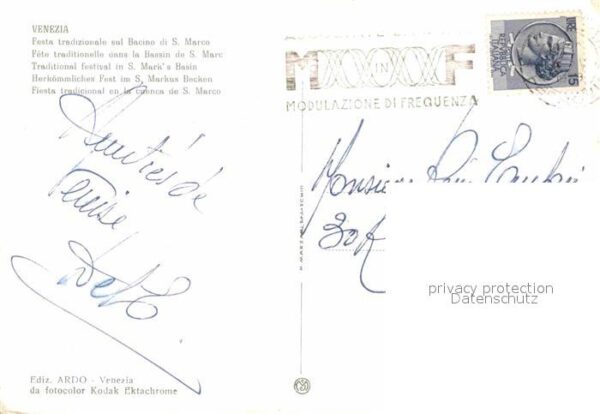 VENEZIA
Festa tradizionale sul Bacino di S. Marco
Fête traditionelle dans la Bassin de S. Marc
Traditional festival in S. Mark's Basin
Herkömmliches Fest im S. Markus Becken
Fiesta tradicional en la cuenca de S. Marco
Amitiés de
Venise
M IN F
MODULAZIONE DI FREQUENZA
15
Monsieur
privacy protection
Datenschutz
Ediz. ARDO - Venezia
da fotocolor Kodak Ektachrome